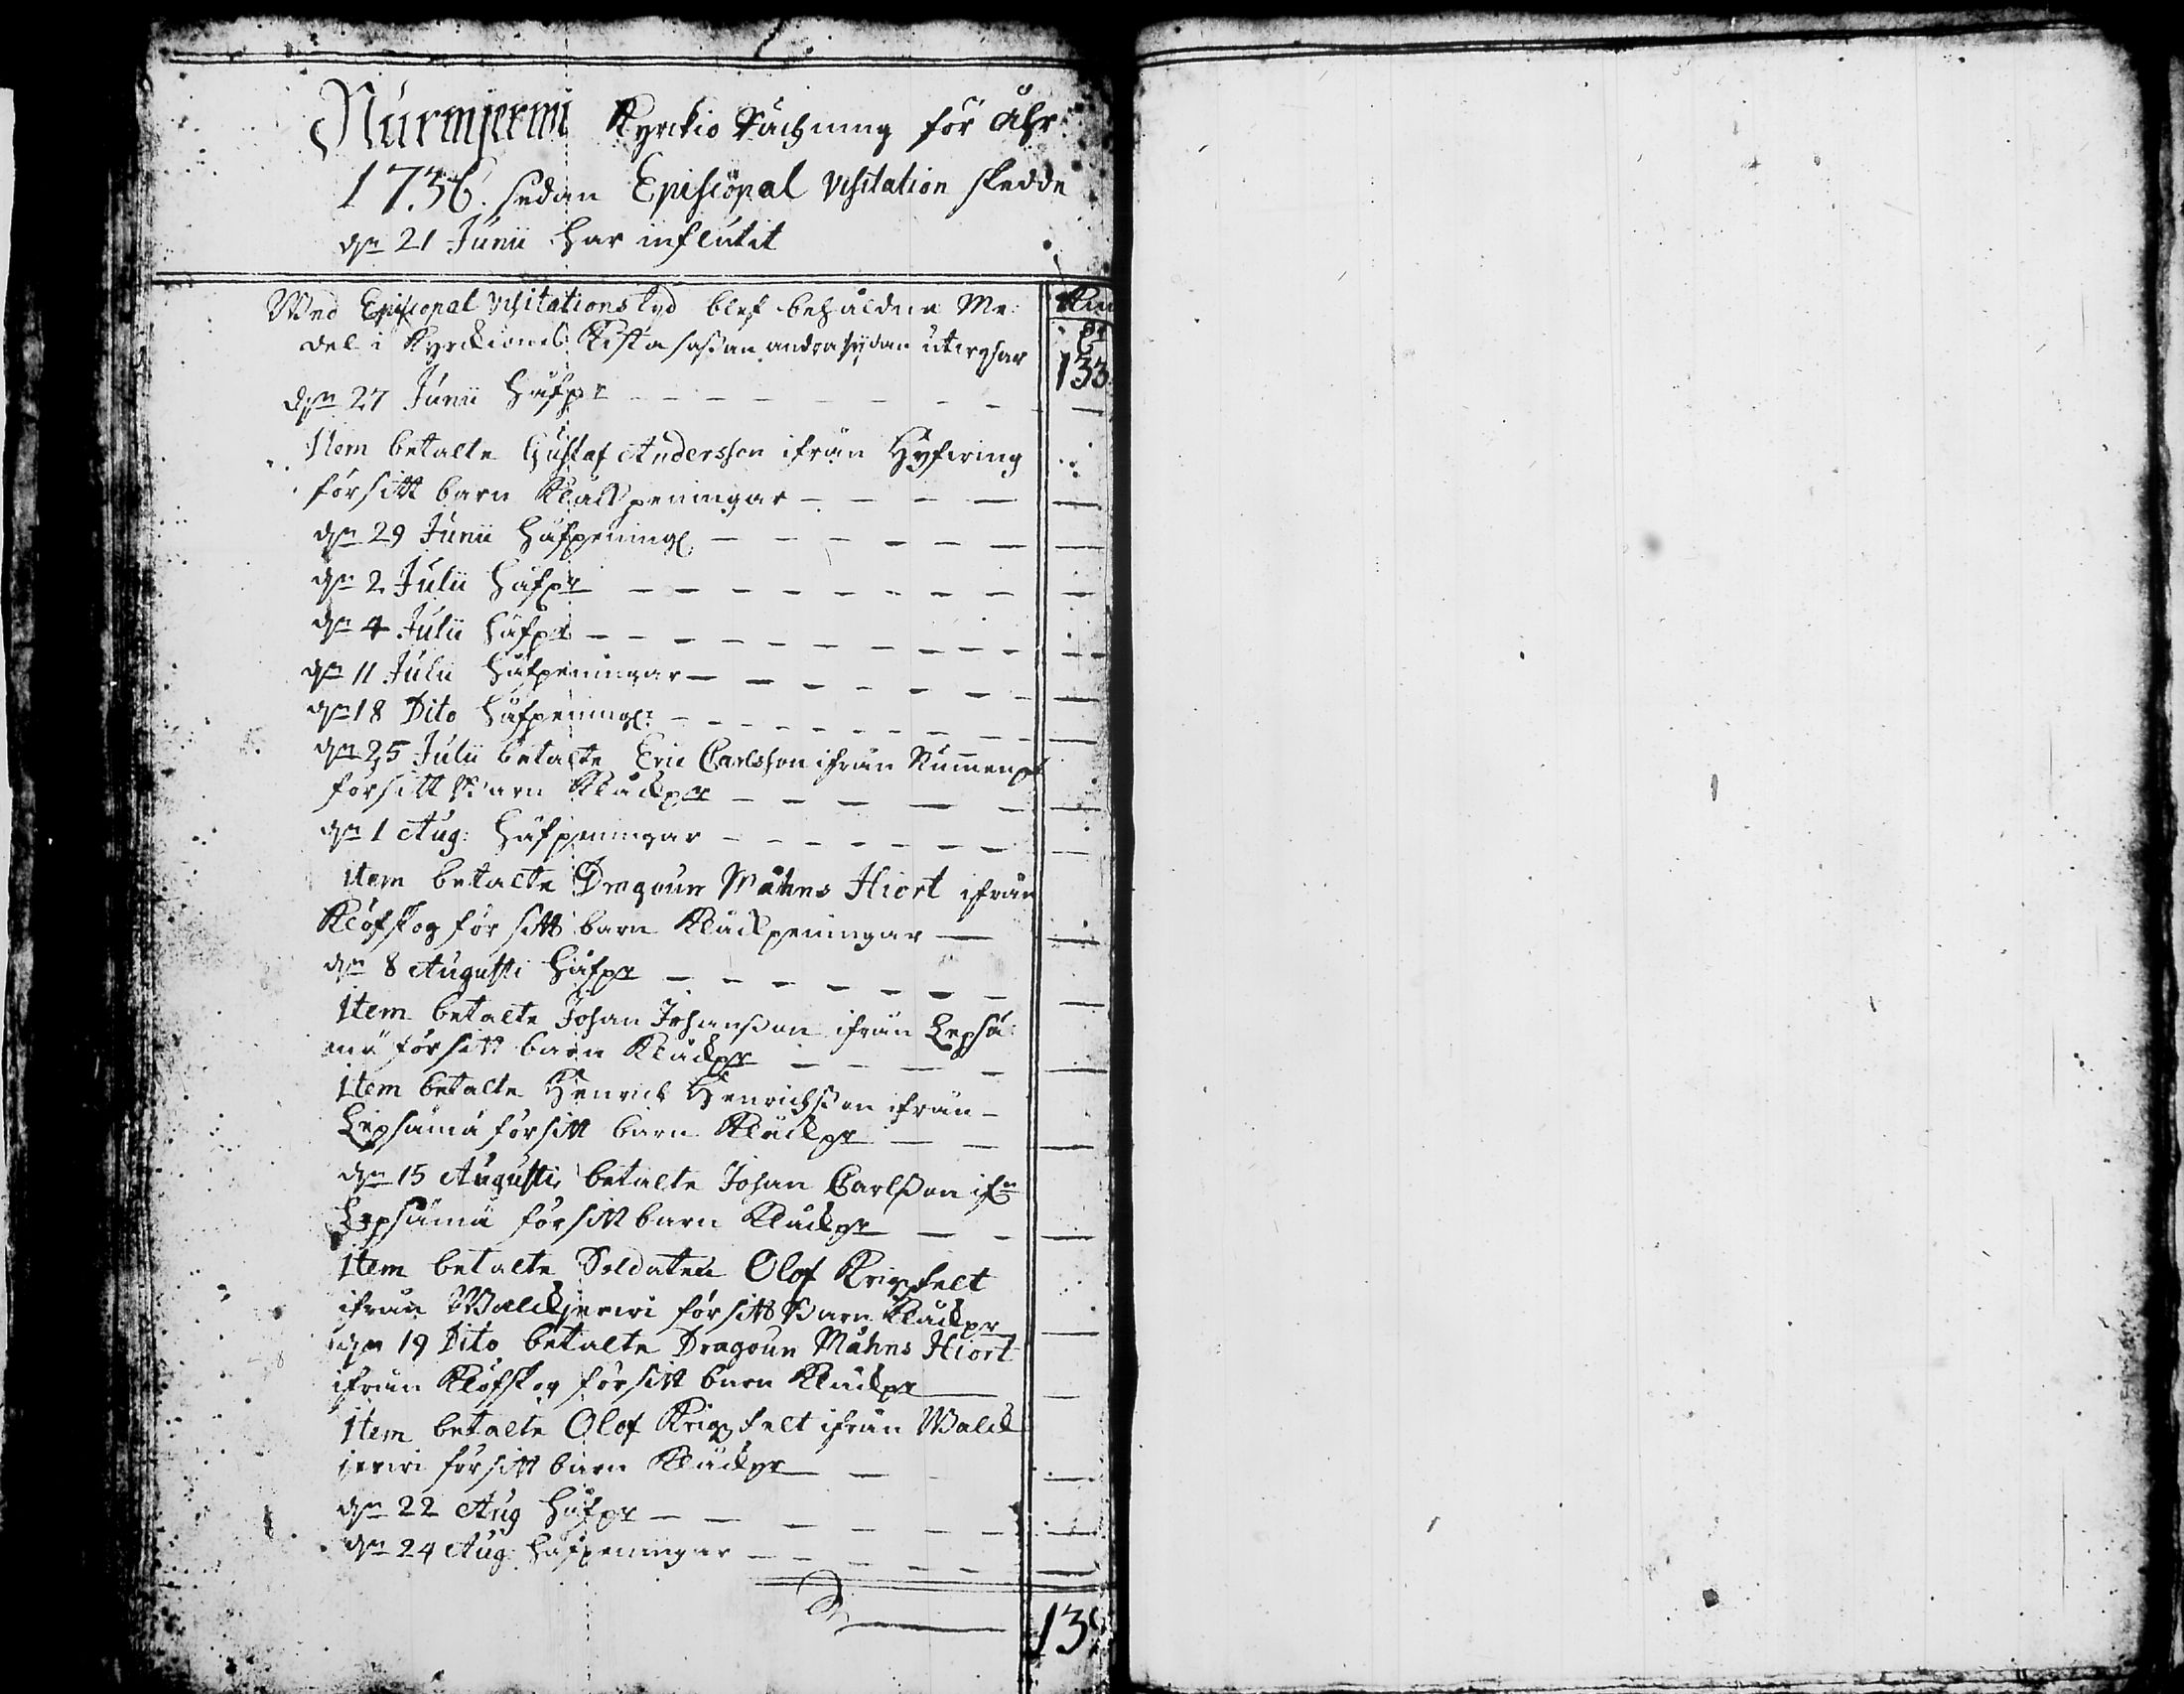 Nurmjerwi Kyrckio Räckning för åhr
1736. sedan Episcopal visitation skedde
dn 21 Junii har influtit
Wed Episcopal visitations tyd blef behåldne Me:
del i Kyrckiones Kista såssan andra sydan utwysar
133
dn 27 Junii håfpr
Item betalte Gustaf Andersson ifrån Hyfwing
för sitt barn Kläckpeningar
dn 29 Junii håfpening
dn 2 Julii håfpr
dn 4 Julii håfpr
dn 11 Julii håfpeningar
dn 18 Dito håfpening:
dn 25 Julii betalte Eric Carlsson ifrån
för sitt Barn Kläckpr
dn 1 Aug: håfpeningar
item betalte Dragoun Måhns Hiort ifrån
Klöfskog för sitt barn Kläckpeningar
dn 8 Augusti håfpr
Item betalte Johan Johansson ifrån Lepsä:
mä för sitt barn Kläckpr
Item betalte Henrick Henrichsson ifrån
Lepsämä för sitt barn Kläckpr
dn 15 Augusti betalte Johan Carlsson ifn
Lepsämä för sitt barn Kläckpr
Item betalte Soldaten Olof Krigsfelt
ifrån Walckjerwi för sitt Barn Kläckpr
dn 19 Dito betalte Dragoun Måhns Hiort
ifrån Klöfskog för sitt barn Kläckpr
Item betalte Olof Krigsfelt ifrån Walck
jerwi för sitt barn Kläckpr
dn 22 Aug håfpr
dn 24 Aug: håfpeningar